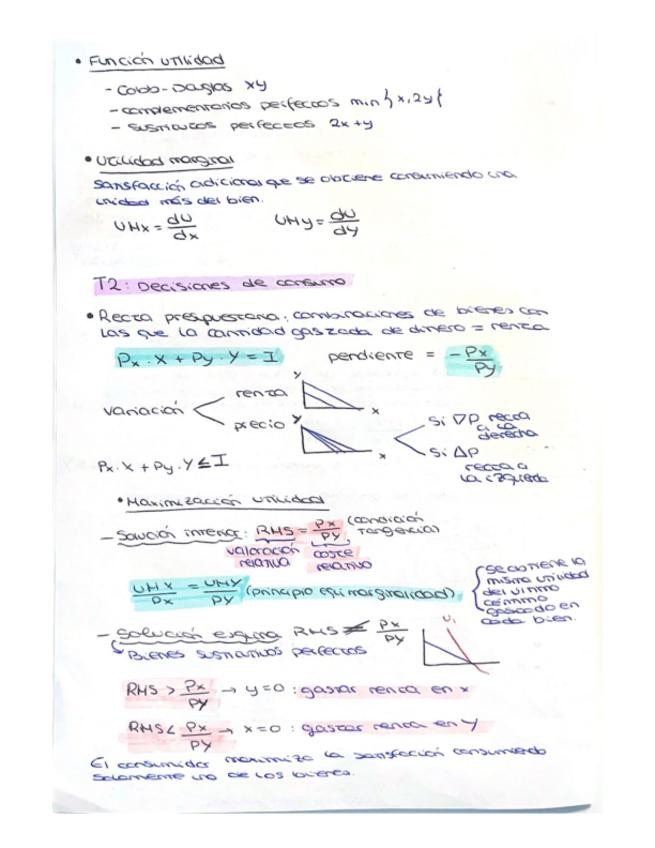 • Función utilidad
- Cobb-Douglas xy
- complementarios perfectos min } x, 2y {
- sustitutos perfectos 2x+y
• Utilidad marginal
Satisfacción adicional que se obtiene consumiendo una
unidad más del bien.
UMx = dU/dx UMy = dU/dy
T2: Decisiones de consumo
• Recta presupuestaria: combinaciones de bienes con
las que la cantidad gastada de dinero = renta
Px · X + Py · Y = I pendiente = - Px/Py
variación
renta
y
x
precio
y
x
Si ∇P recta
a la
derecha
Si ΔP
recta a
la izquierda
Px · X + Py · Y ≤ I
• Maximización utilidad
- Solución interior: RMS = Px/Py (condición
tangencia)
valoración
relativa
coste
relativo
UMx/Px = UMy/Py (principio equimarginalidad)
se obtiene la
misma utilidad
del último
céntimo
gastado en
cada bien.
- Solución esquina RMS ≠ Px/Py
U1
Bienes sustitutivos perfectos
RMS > Px/Py → y=0 : gastar renta en x
RMS < Px/Py → x=0 : gastar renta en y
El consumidor maximiza la satisfacción consumiendo
solamente uno de los bienes.